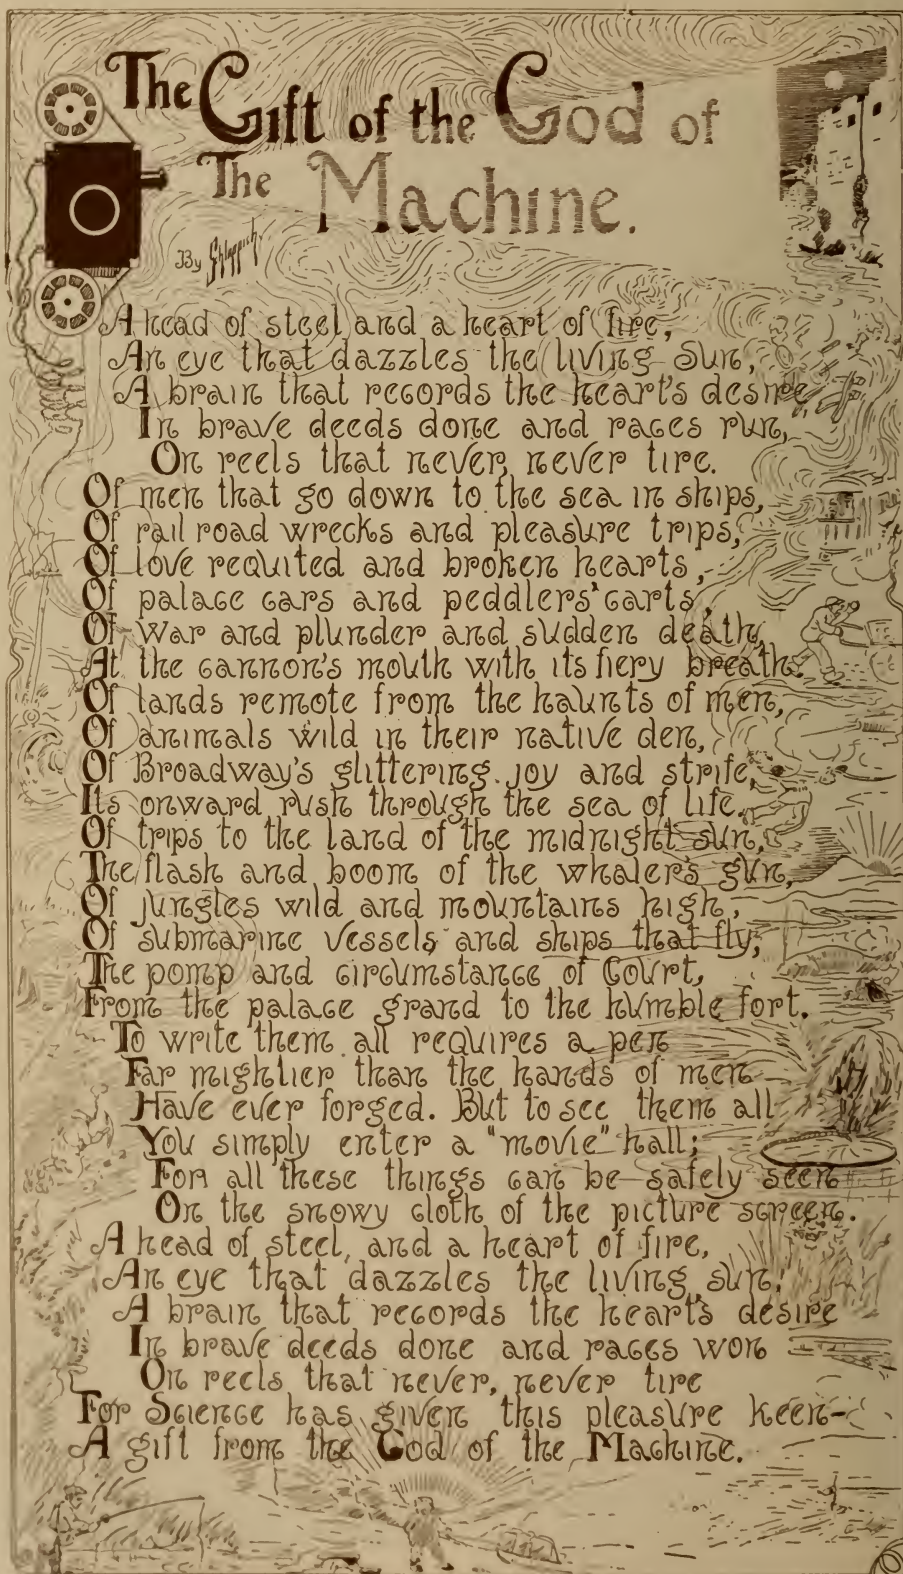 The Gift of the God of
The Machine.
By Shleppich
A head of steel and a heart of fire,
An eye that dazzles the living sun,
A brain that records the heart's desire,
In brave deeds done and races run,
On reels that never, never tire.
Of men that go down to the sea in ships,
Of rail road wrecks and pleasure trips,
Of love requited and broken hearts,
Of palace cars and peddlers' carts,
Of war and plunder and sudden death,
At the cannon's mouth with its fiery breath.
Of lands remote from the haunts of men,
Of animals wild in their native den,
Of Broadway's glittering joy and strife,
Its onward rush through the sea of life.
Of trips to the land of the midnight sun,
The flash and boom of the whaler's gun,
Of jungles wild and mountains high,
Of submarine vessels and ships that fly,
The pomp and circumstance of Court,
From the palace grand to the humble fort.
To write them all requires a pen
Far mightier than the hands of men
Have ever forged. But to see them all
You simply enter a "movie" hall;
For all these things can be safely seen
On the snowy cloth of the picture screen.
A head of steel, and a heart of fire,
An eye that dazzles the living sun,
A brain that records the heart's desire
In brave deeds done and races won
On reels that never, never tire
For Science has given this pleasure keen-
A gift from the God of the Machine.